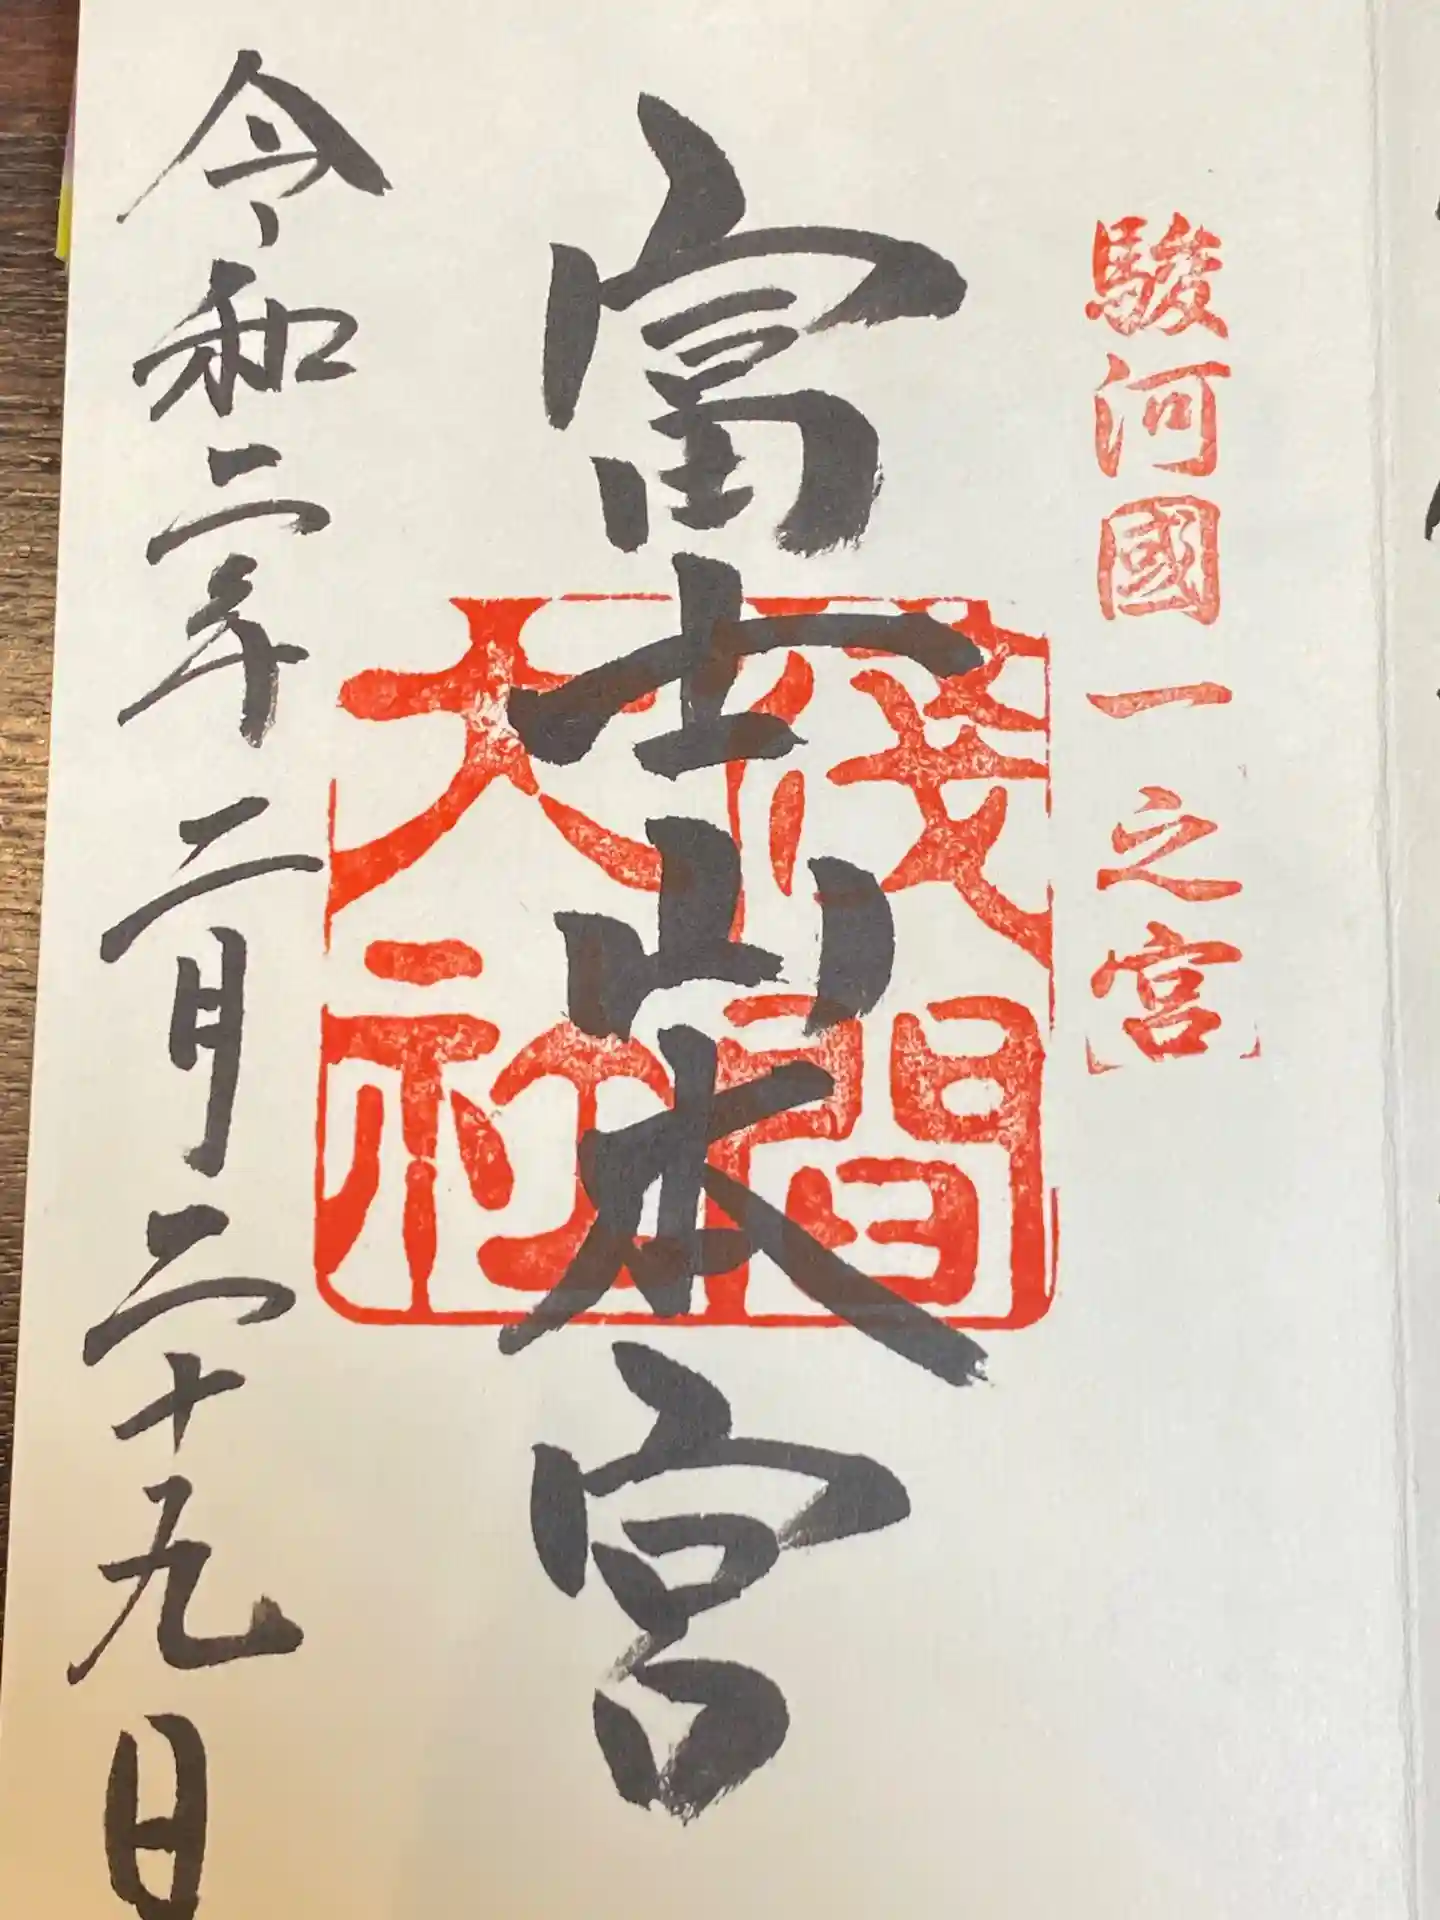 駿河國一之宮
富士山本宮
淺間
大社
令和二年二月二十九日